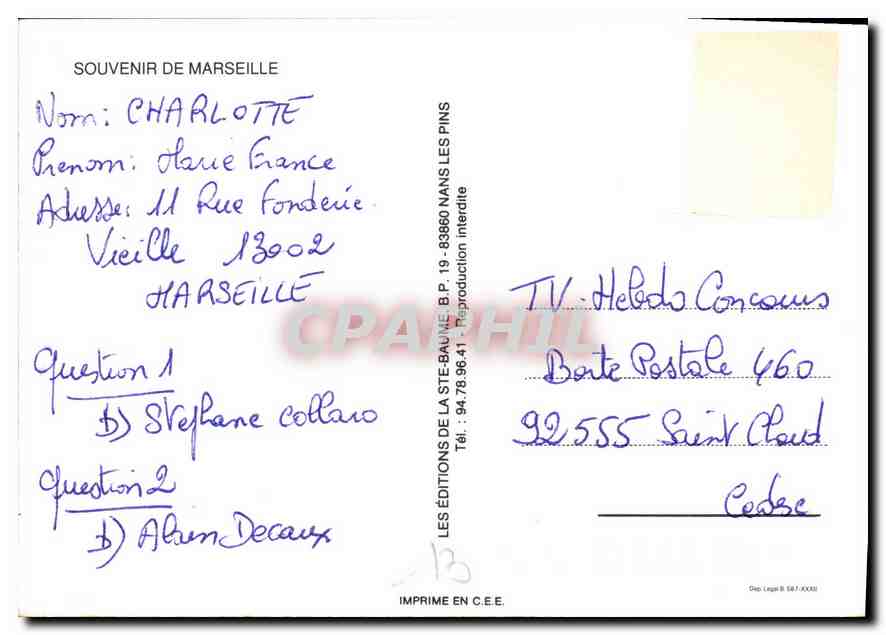 SOUVENIR DE MARSEILLE
Nom: CHARLOTTE
Prenom: Marie France
Adresse: 11 Rue Fonderie
Vieille 13002
MARSEILLE
Question 1
b) Stephane Collaro
Question 2
b) Alain Decaux
LES ÉDITIONS DE LA STE-BAUME. B.P. 19 - 83860 NANS LES PINS
Tél. : 94.78.96.41 - Reproduction interdite
TV. Hebdo Concours
Boite Postale 460
92555 Saint Cloud
Cedex
13
IMPRIME EN C.E.E.
CPAPHIL